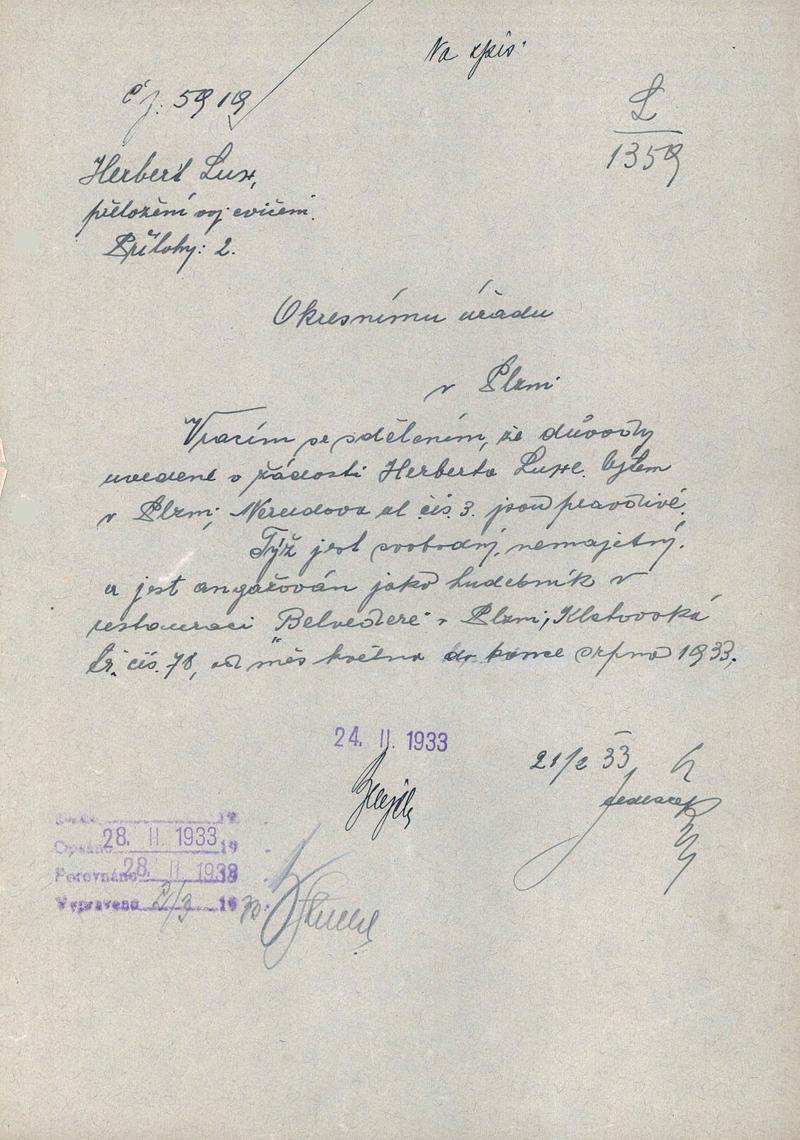 Na spis:
Čj. 5919
L
1359
Herbert Lux,
přeložení voj. cvičení.
Přílohy: 2.
Okresnímu úřadu
v Plzni.
Vracím se sdělením, že důvody
uvedené v žádosti Herberta Luxe, bytem
v Plzni, Nerudova ul. čís. 3. jsou pravdivé.
Týž jest svobodný, nemajetný.
a jest angažován jako hudebník v
restauraci "Belvedere" v Plzni, Klatovská
tř. čís. 78, od měs. května do konce srpna 1933.
24. II. 1933
21/2 33
Opsáno 28. II. 1933 19
Porovnáno 28. II. 1933
Vypraveno 2/3 19